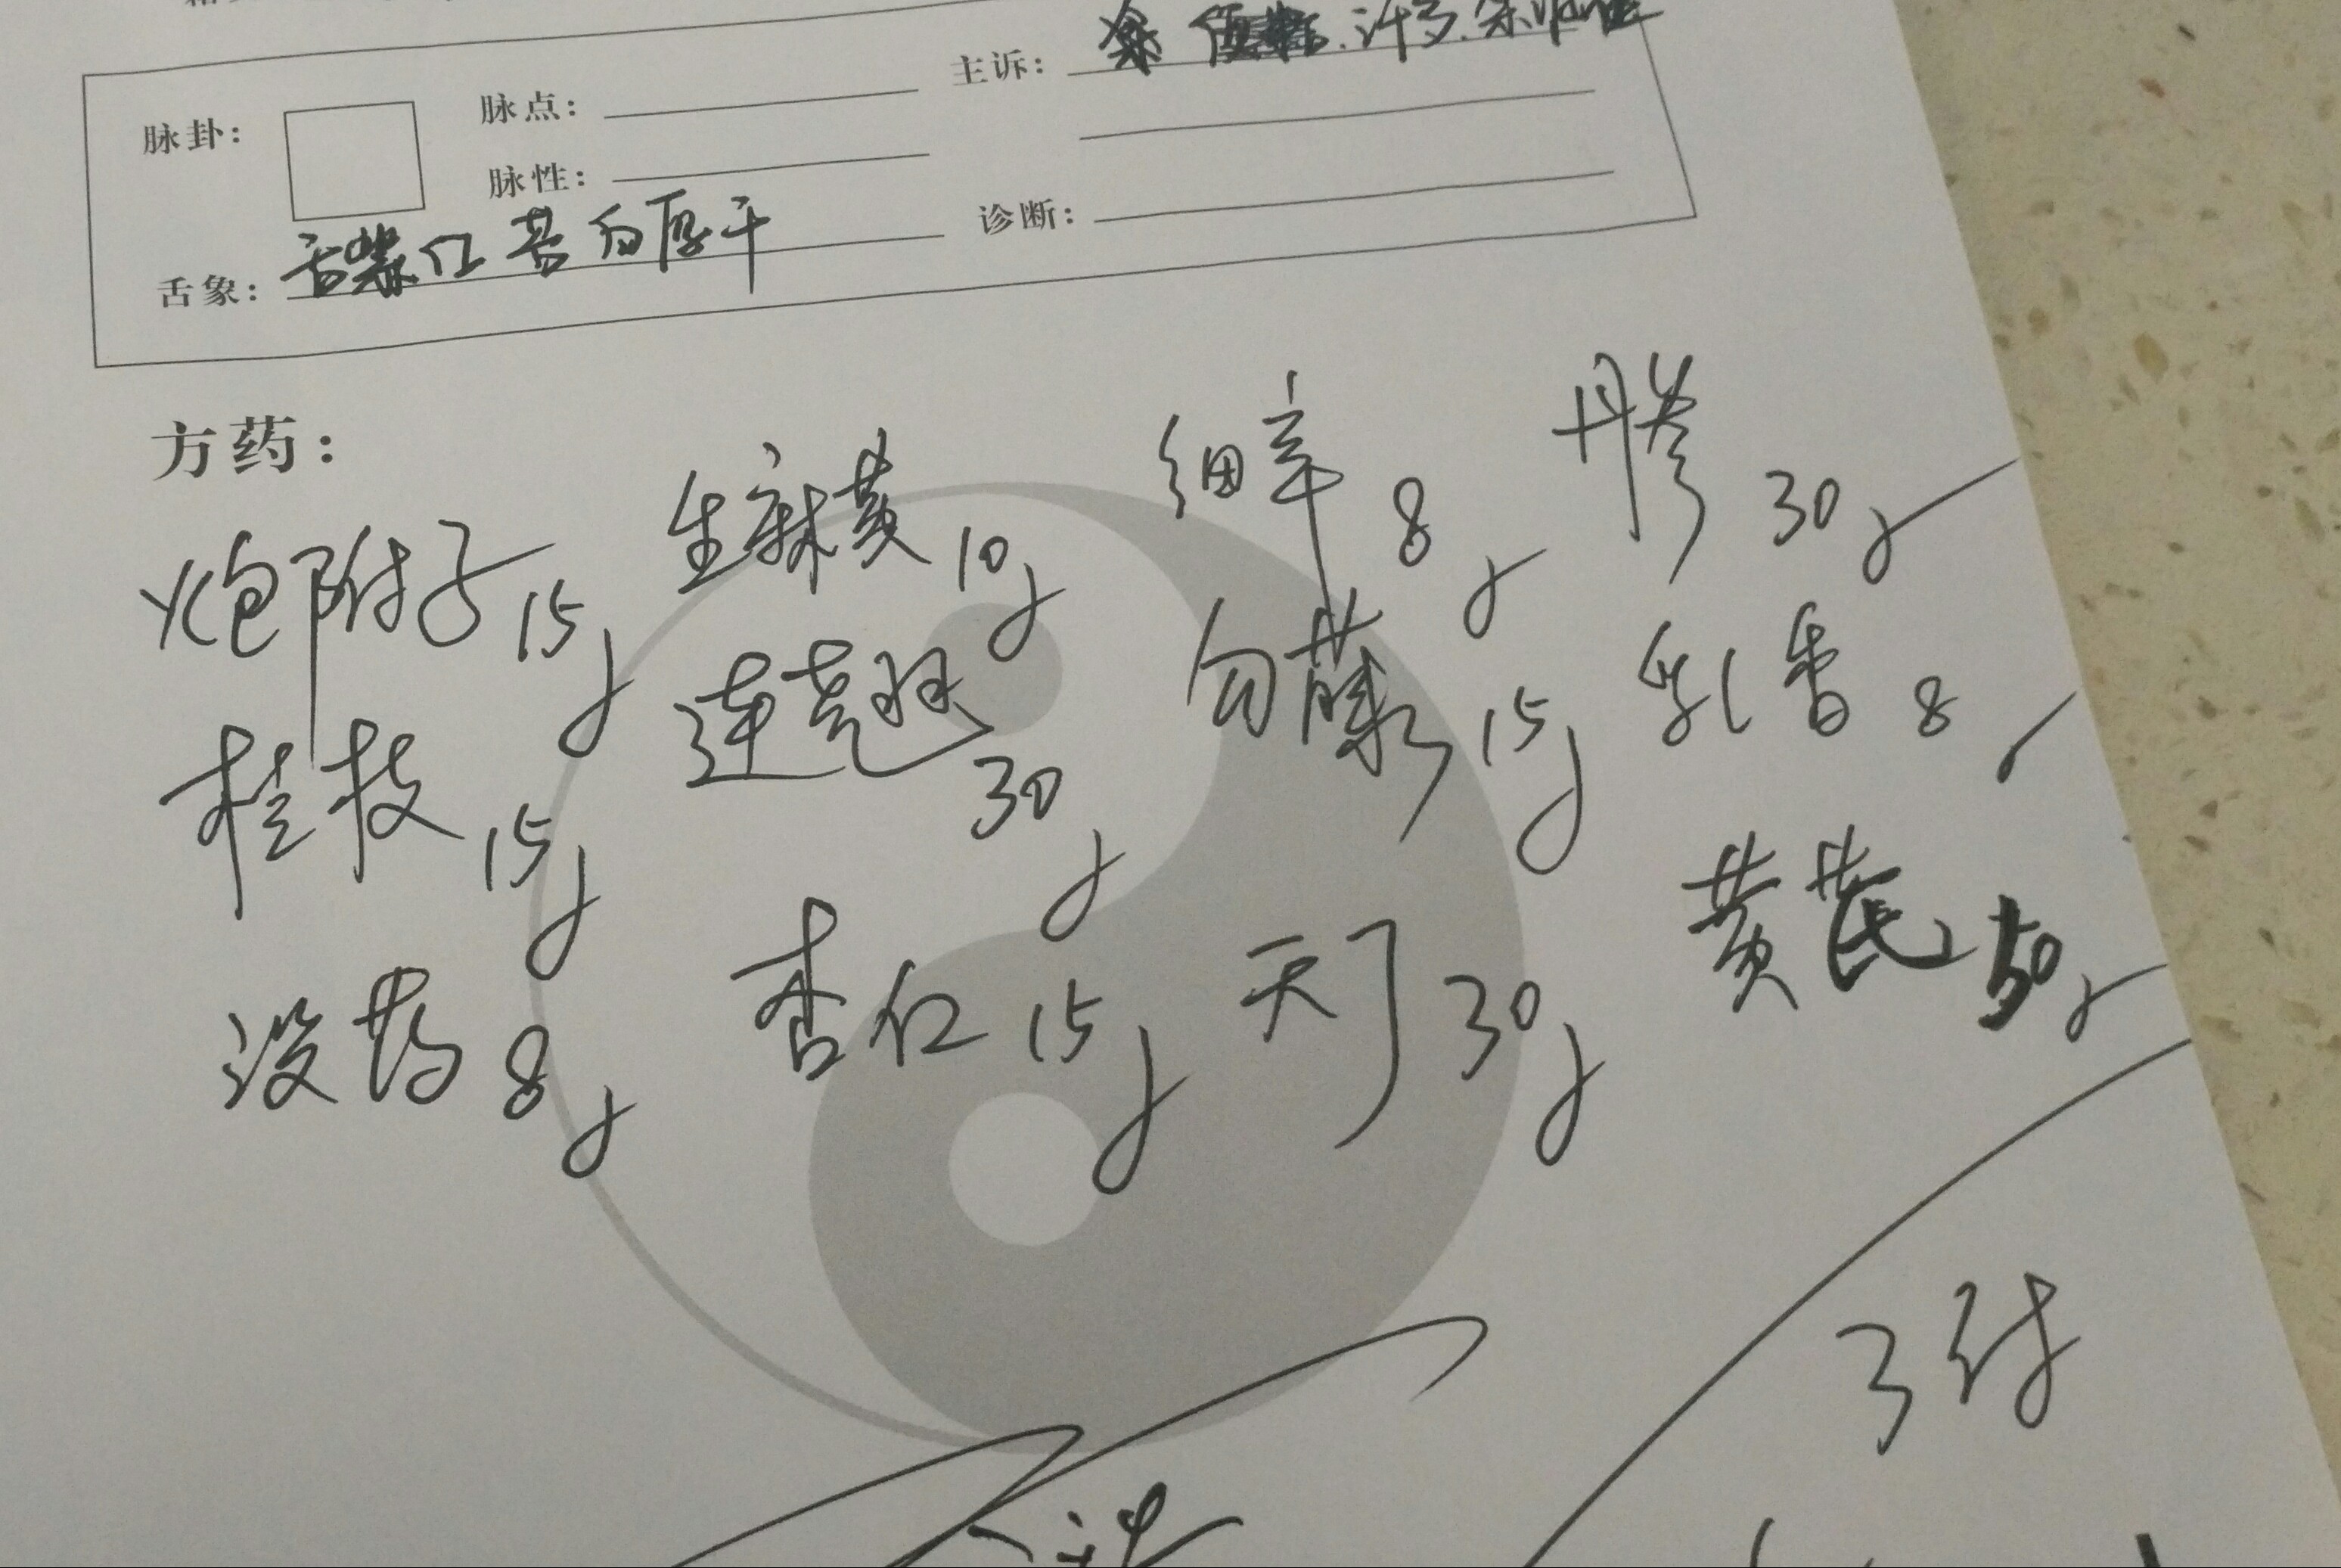 主诉:
脉卦: 脉点:
脉性:
诊断:
舌象: 舌紫红苔白厚干
方药:
炮附子15g 生麻黄10g 细辛8g 丹参30g
桂枝15g 连翘30g 勾藤15g 乳香8
没药8g 杏仁15g 天丁30g 黄芪50g
3付